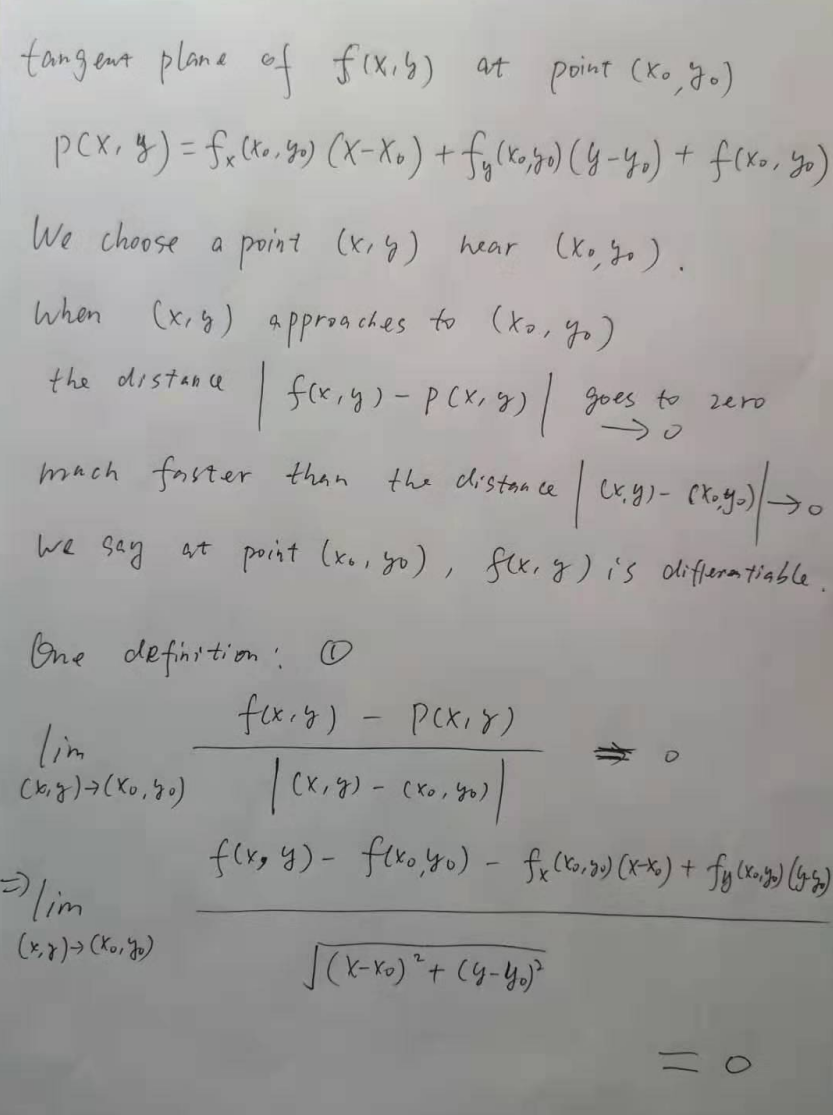 tangent plane of f(x,y) at point (x₀,y₀)
p(x,y) = fₓ(x₀,y₀)(x-x₀) + f_y(x₀,y₀)(y-y₀) + f(x₀,y₀)
We choose a point (x,y) near (x₀,y₀).
When (x,y) approaches to (x₀,y₀)
the distance |f(x,y) - p(x,y)| goes to zero
→0
much faster than the distance |(x,y) - (x₀,y₀)|→0
We say at point (x₀,y₀), f(x,y) is differentiable.
One definition: ①
f(x,y) - p(x,y)
lim ⇒ 0
(x,y)→(x₀,y₀) |(x,y) - (x₀,y₀)|
f(x,y) - f(x₀,y₀) - fₓ(x₀,y₀)(x-x₀) + f_y(x₀,y₀)(y-y₀)
⇒ lim
(x,y)→(x₀,y₀) √(x-x₀)² + (y-y₀)²
= 0